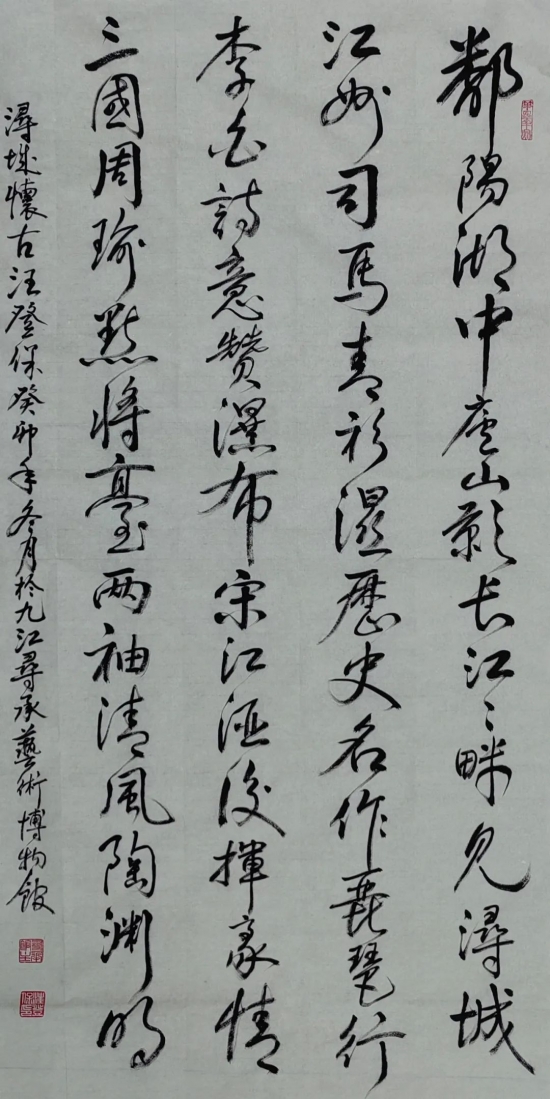 鄱陽湖中廬山影长江々畔見潯城
江州司馬青衫濕歷史名作琵琶行
李白詩意贊瀑布宋江酒後揮豪情
三國周瑜點將臺两袖清風陶渊明
潯城懷古汪登保癸卯年冬月於九江尋承藝術博物館